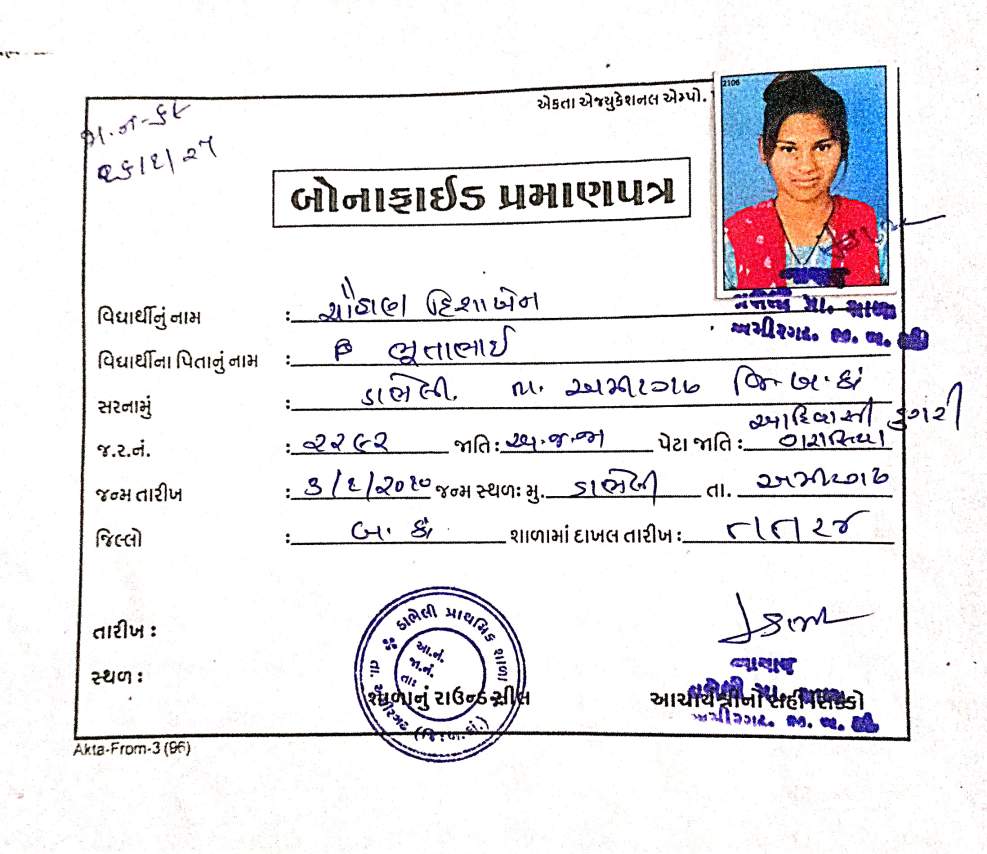 એકતા એજ્યુકેશનલ એમ્પો.
2106
બોનાફાઈડ પ્રમાણપત્ર
વિદ્યાર્થીનું નામ : ચૌહાણ દિશાબેન
વિદ્યાર્થીના પિતાનું નામ : ભૂતાભાઈ
સરનામું : ડાભેલી. તા. અમીરગઢ જિ. બ. કાં
જ.ર.નં. : ૨૨૯૨ જાતિ : અ.જ.જા પેટા જાતિ : આદિવાસી ડુંગરી ગરાસિયા
જન્મ તારીખ : ૩/૬/૨૦૧૦ જન્મ સ્થળઃ મુ. ડાભેલી તા. અમીરગઢ
જિલ્લો : બ. કાં શાળામાં દાખલ તારીખ :
તારીખ :
સ્થળ :
ડાભેલી પ્રાથમિક શાળા
આ.નં.
જા.નં.
તાઃ
તા. અમીરગઢ (જિ.બ.કાં.)
શાળાનું રાઉન્ડ સીલ
આચાર્યશ્રીનો સહી સિક્કો
આચાર્ય
અમીરગઢ. જી. બ. કાં
Akta-From-3 (96)